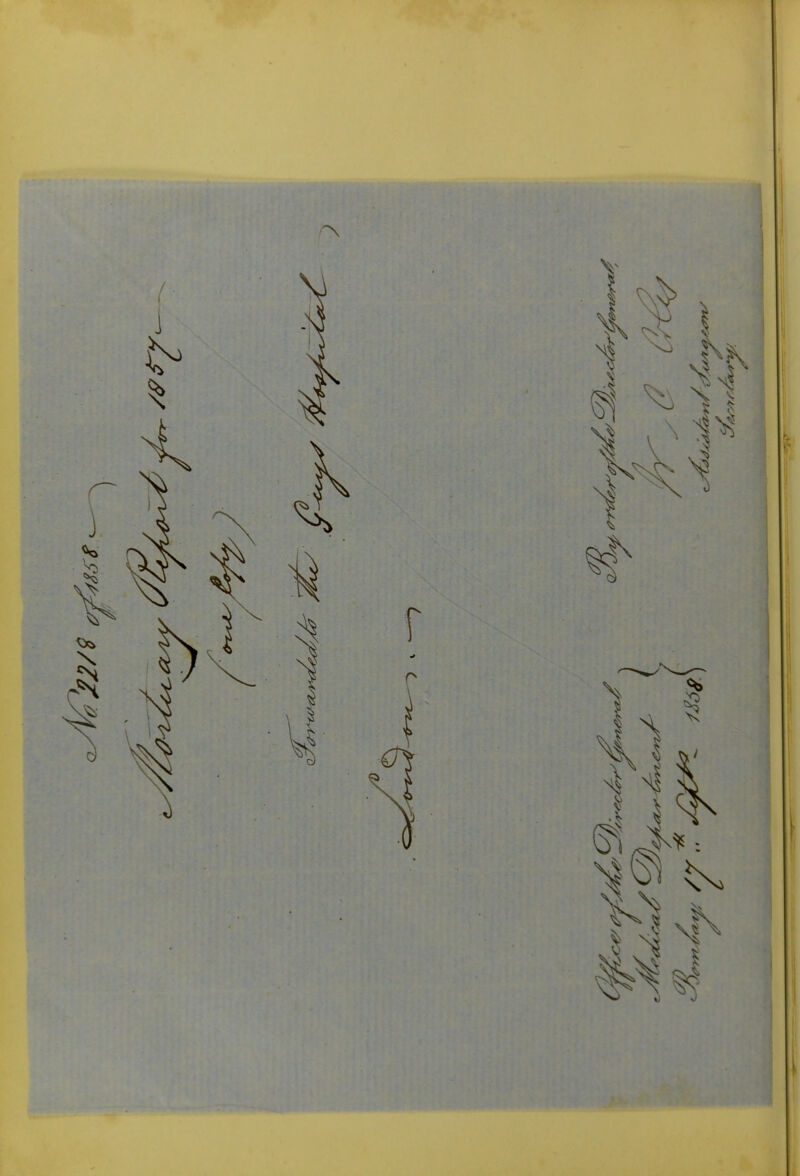 No. 2218 of 1858
Mortuary Report for 1857
(one Copy)
Forwarded to the Guys Hospital
London.
By order of the Director General,
W C
Assistant Surgeon
Secretary.
Office of the Director General
Medical Department
Bombay, 17th Septr. 1858